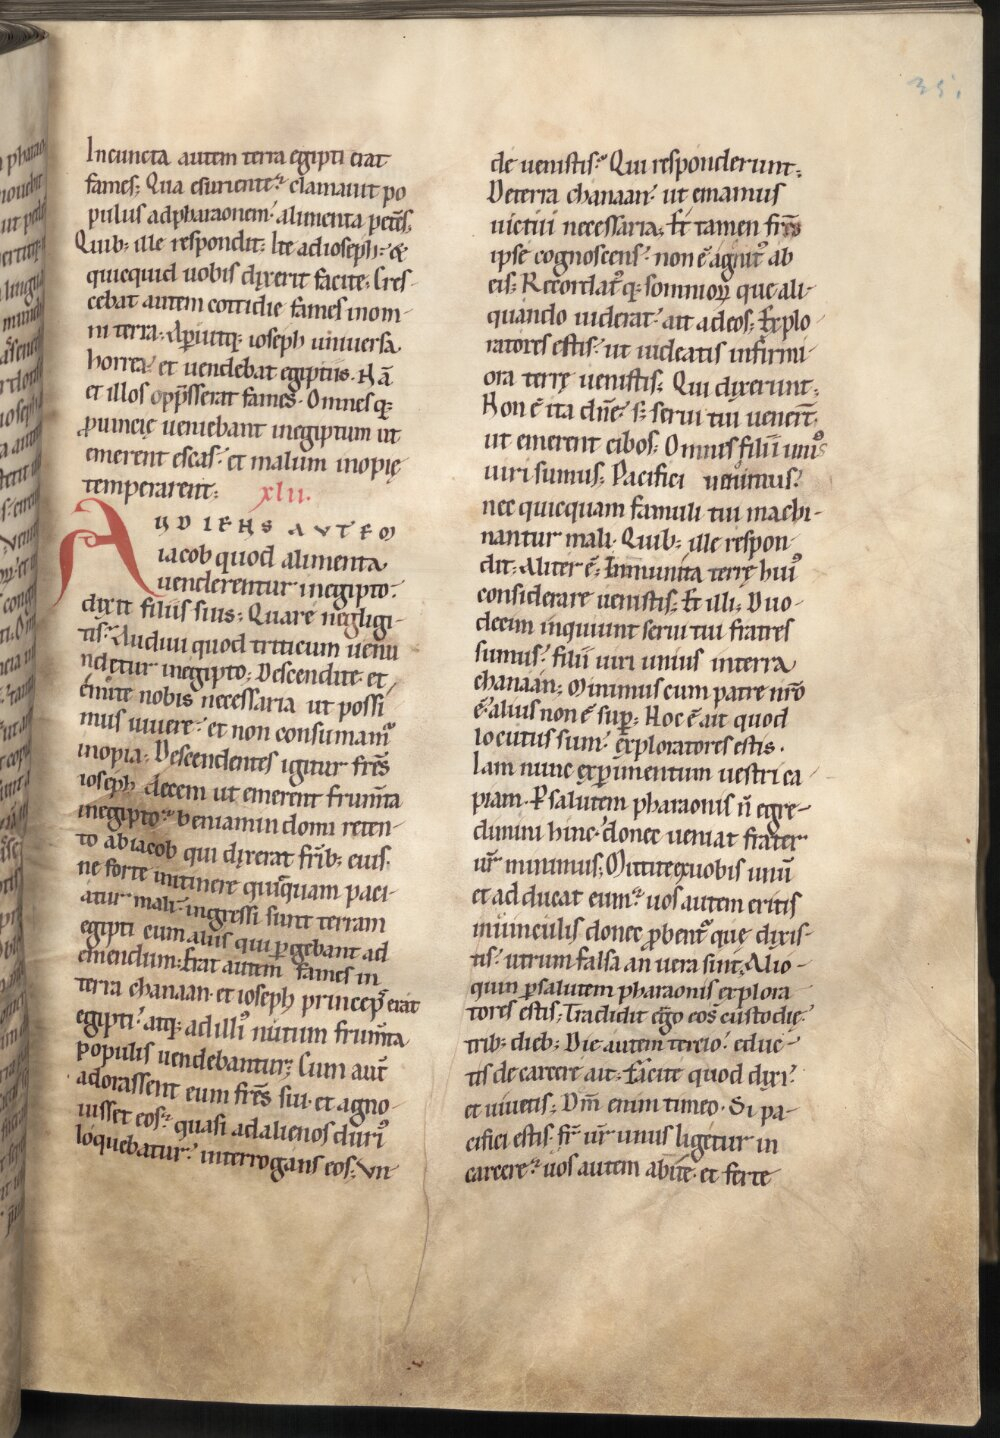 35.
Incuncta autem terra egipti erat
fames; Qua esuriente clamauit po
pulus adpharaonem. alimenta petēs;
Quib; ille respondit; Ite adioseph. &
quicquid uobis dixerit facite; Cres-
cebat autem cottidie fames inom-
ni terra. Aꝑiuitq; ioseph uniuersa
horrea. et uendebat egiptiis. Nā
et illos opp̄sserat fames. Omnesq;
ꝓuincię ueniebant inegiptum ut
emerent escas. et malum inopię
temperarent; xlii.
AUDIENS AUTEM
iacob quod alimenta
uenderentur inegipto.
dixit filiis suis; Quare negligi-
tis. Audiui quod triticum uenu
ndetur inegipto; Descendite. et
emite nobis necessaria ut possi
mus uiuere. et non consumam᷒
inopia; Descendentes igitur frēs
ioseph decem ut emerent frum̄ta
inegipto. beniamin domi reten-
to abiacob qui dixerat fr̄ib; eius.
ne forte initinere quicquam paci-
atur mali. ingressi sunt terram
egipti cum aliis qui ꝑgebant ad
emendum; Erat autem fames in
terra chanaan. et ioseph princeps erat
egipti. atq; adilli᷒ nutum frum̄ta
populis uendebantur; Cum aut̄
adorassent eum frēs sui. et agno-
uisset eos. quasi adalienos duri᷒
loquebatur. interrogans eos; Vn-
de uenistis. Qui responderunt;
Deterra chanaan. ut emamus
uictui necessaria; Et tamen frēs
ipse cognoscens. non ē agnit᷒ ab
eis; Recordat᷒q; somnioꝝ que ali-
quando uiderat. ait adeos; Explo-
ratores estis. ut uideatis infirmi-
ora terrę uenistis; Qui dixerunt;
Non ē ita dn̄e. s; serui tui uener̄t
ut emerent cibos; Omnes filii uni᷒
uiri sumus; Pacifici uenimus.
nec quicquam famuli tui machi-
nantur mali. Quib; ille respon-
dit; Aliter ē; Inmunita terrę hui᷒
considerare uenistis; Et illi; Duo-
decim inquiunt serui tui fratres
sumus. filii uiri unius interra
chanaan; Minimus cum patre nr̄o
ē. alius non ē suꝑ; Hoc ē ait quod
locutus sum. exploratores estis.
Iam nunc exꝑimentum uestri ca-
piam. P salutem pharaonis n̄ egre-
dimini hinc. donec ueniat frater
ur̄ minimus; Mittite exuobis unū
et adducat eum. uos autem eritis
inuinculis donec ꝓbent᷒ que dixis-
tis. utrum falsa an uera sint; Alio-
quin ꝑsalutem pharaonis explora
tores estis; Tradidit ergo eos custodie
trib; dieb; Die autem tercio. educ-
tis de carcere ait; Facite quod dixi.
et uiuetis; Dm̄ enim timeo. Si pa-
cifici estis. fr̄ ur̄ unus ligetur in
carcere. uos autem abite. et ferte